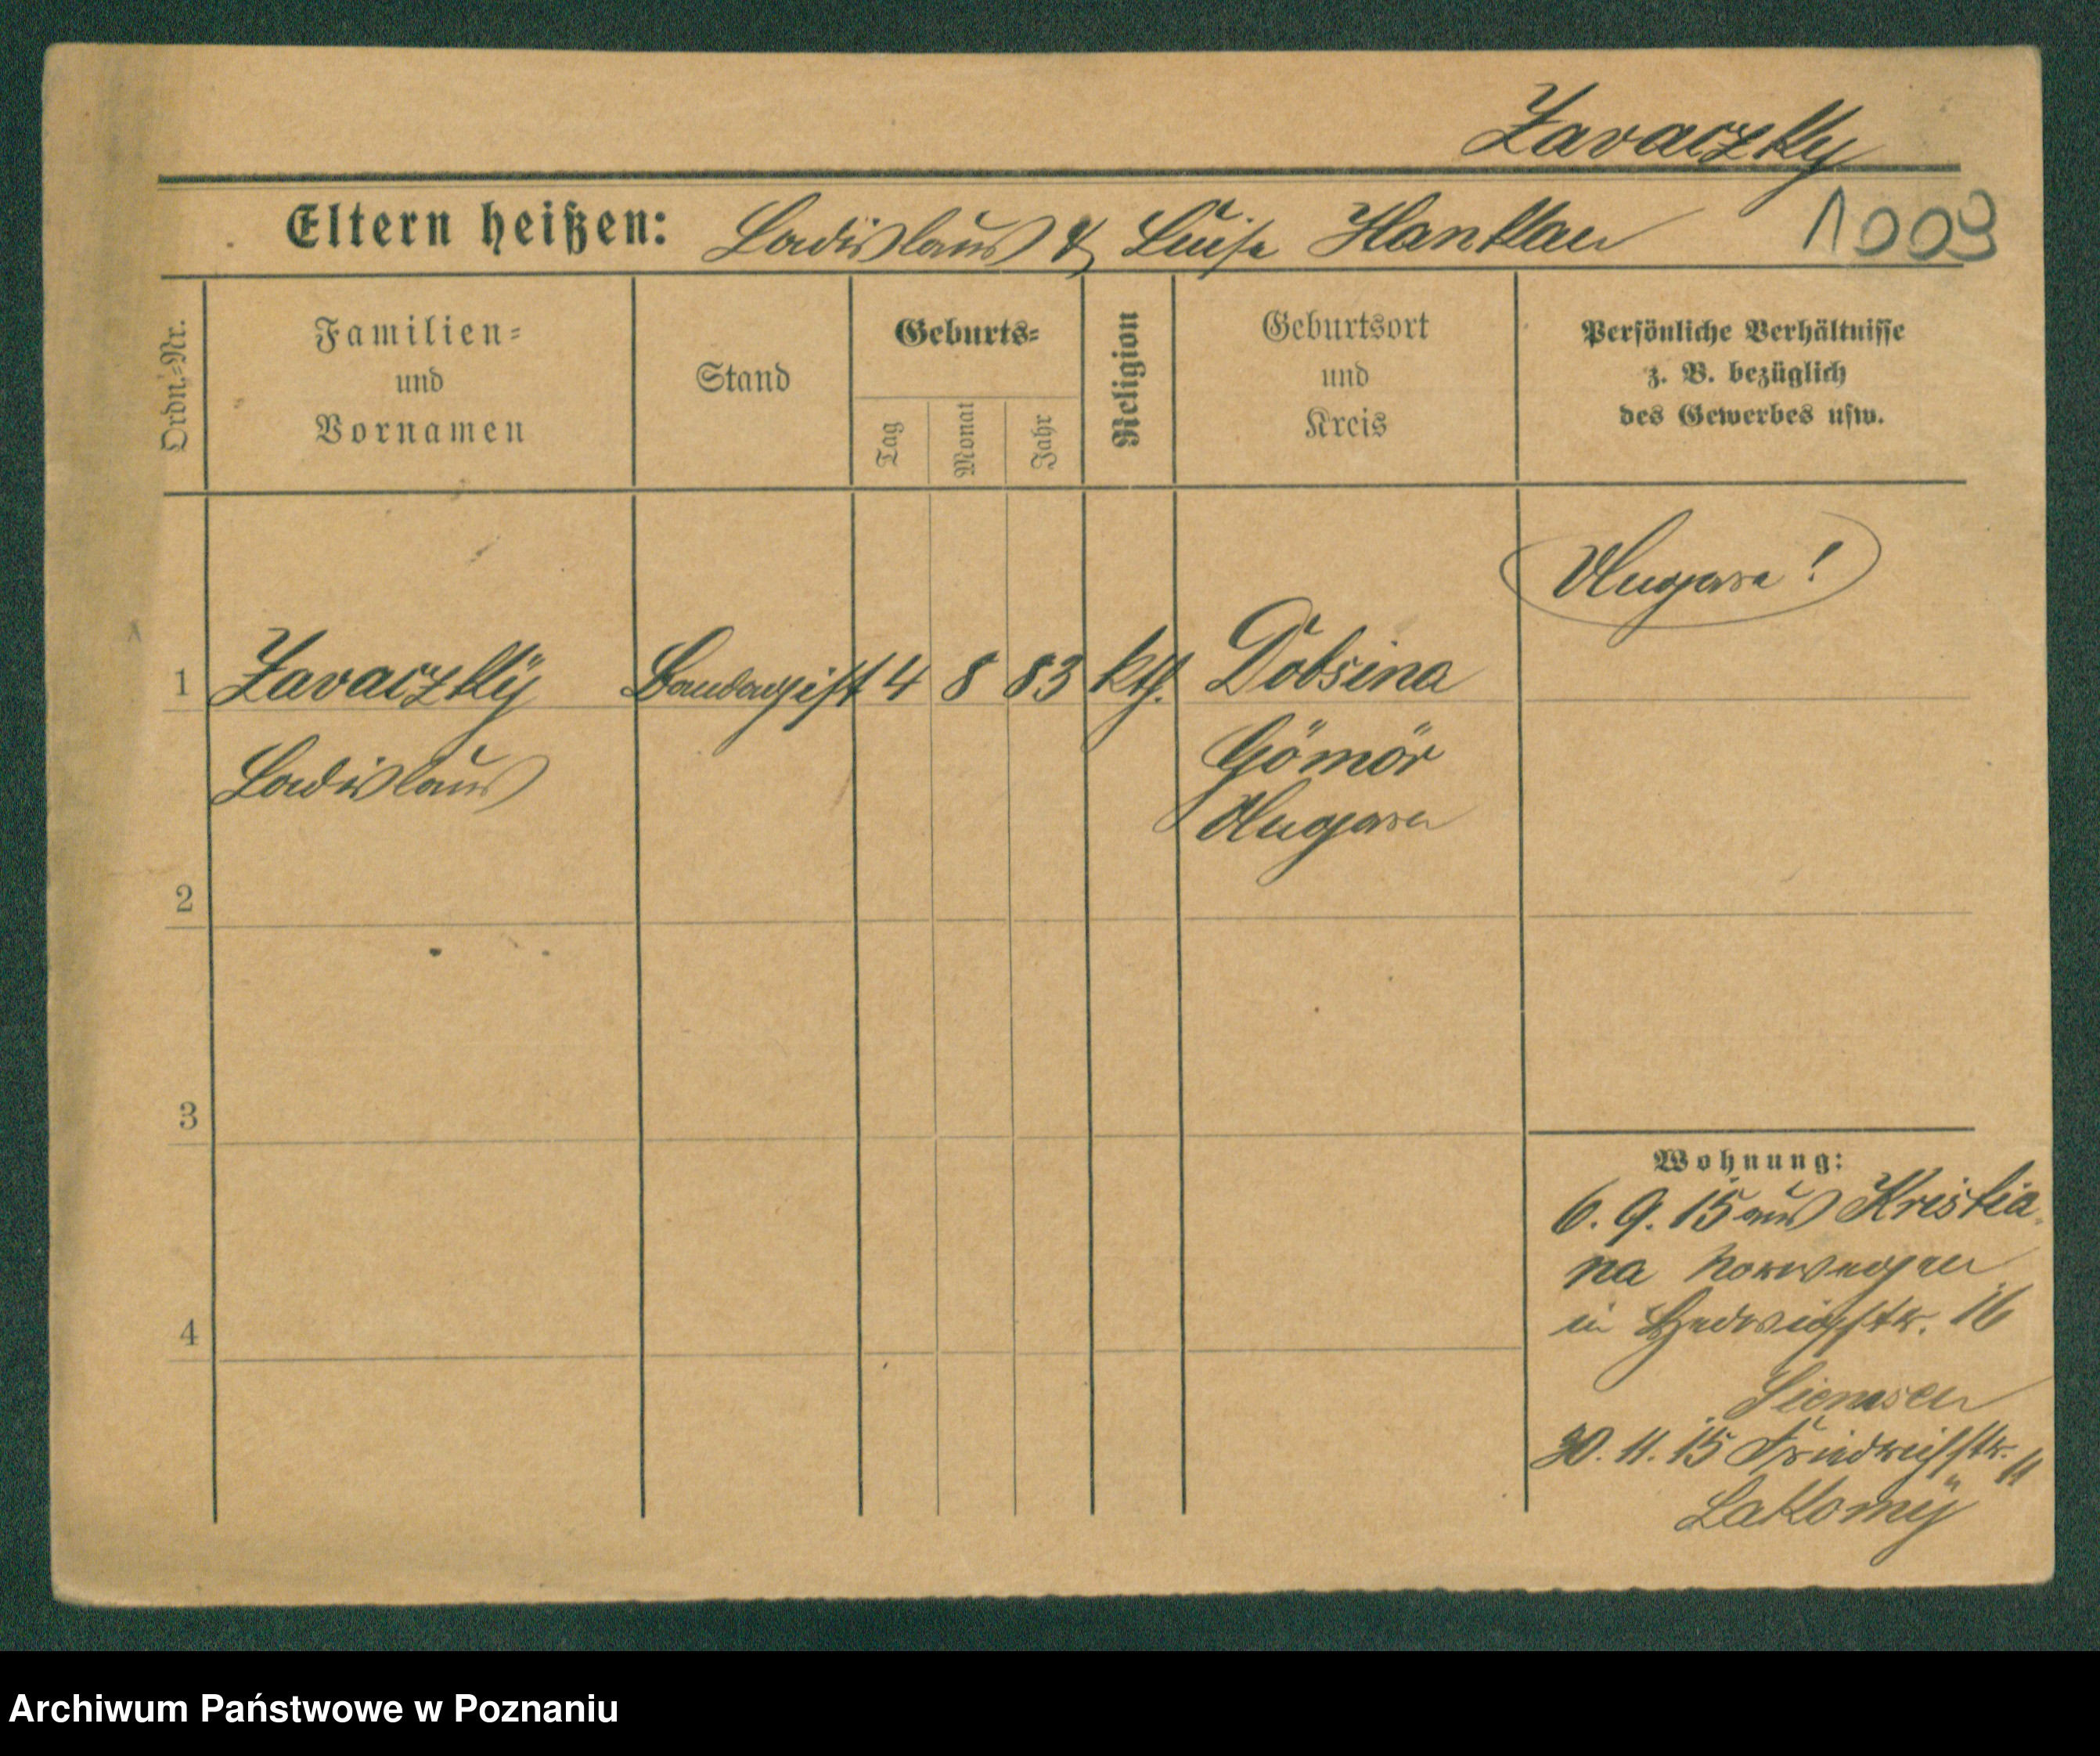 Zavaczky
Eltern heißen: Ladislaus & Luise Hankau 1009
Ordn.-Nr.
Familien-
und
Vornamen
Stand
Geburts-
Tag
Monat
Jahr
Religion
Geburtsort
und
Kreis
Persönliche Verhältnisse
z. B. bezüglich
des Gewerbes usw.
Ungarn!
1 Zavaczkÿ Bandagist 4 8 83 kth. Dobsina
Ladislaus
Gömör
Ungarn
2
3
4
Wohnung:
6. 9. 15 aus Kristia-
na Norwegen
in Hedwigstr. 16
Siemsen
30. 11. 15 Friedrichstr.
11
Lakomÿ
Archiwum Państwowe w Poznaniu